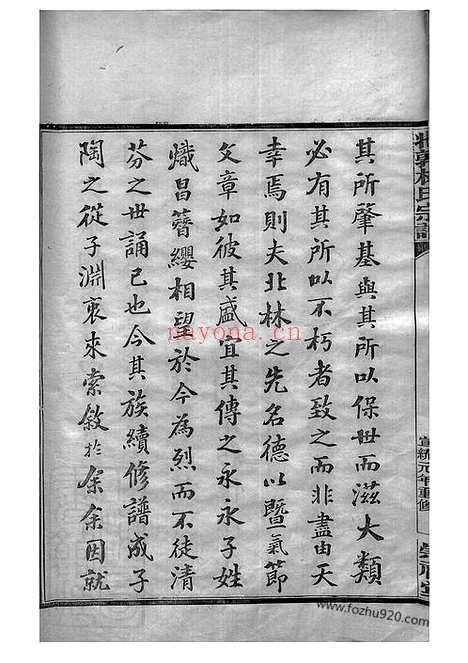 其所肇基與其所以保世而滋大類
必有其所以不朽者致之而非盡由天
幸焉則夫北林之先名德以暨氣節
文章如彼其盛宜其傳之永永子姓
熾昌簪纓相望於今為烈而不徒清
芬之世誦已也今其族續修譜成子
陶之從子淵衷來索敘於余余因就
林氏宗譜
宣統元年重修
nayona.cn
www.fozhu920.com